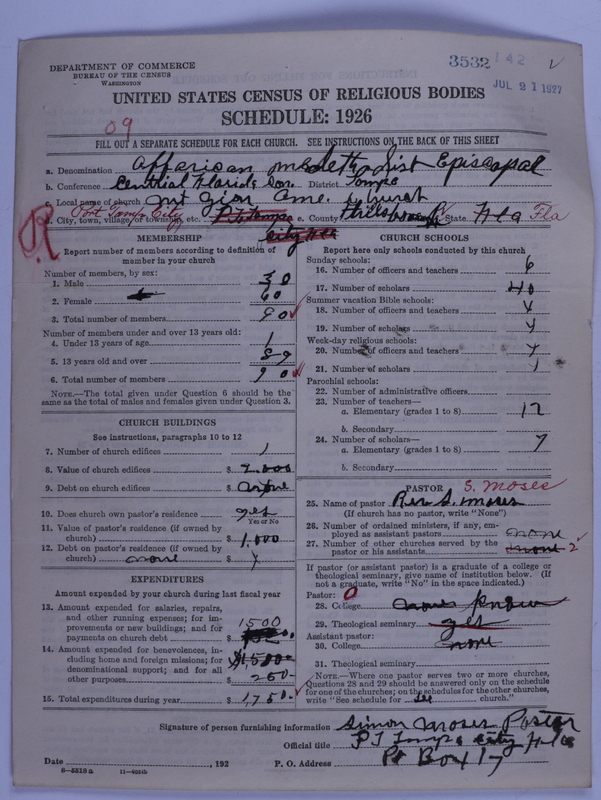 DEPARTMENT OF COMMERCE
BUREAU OF THE CENSUS
WASHINGTON
3532 142 v
JUL 21 1927
UNITED STATES CENSUS OF RELIGIOUS BODIES
SCHEDULE: 1926
09
FILL OUT A SEPARATE SCHEDULE FOR EACH CHURCH. SEE INSTRUCTIONS ON THE BACK OF THIS SHEET
a. Denomination Episcopal
b. Conference Florida Con. District Tampa
c. Local name of church Mt Zion ame church
d. City, town, village, or township, etc. Port Tampa City e. County Hillsborough State Fla Fla
R
MEMBERSHIP
Report number of members according to definition of member in your church
Number of members, by sex:
1. Male 30
2. Female 60
3. Total number of members 90
Number of members under and over 13 years old:
4. Under 13 years of age 1
5. 13 years old and over 89
6. Total number of members 90
NOTE.—The total given under Question 6 should be the same as the total of males and females given under Question 3.
CHURCH BUILDINGS
See instructions, paragraphs 10 to 12
7. Number of church edifices 1
8. Value of church edifices $ 2.000
9. Debt on church edifices $
10. Does church own pastor's residence yes
Yes or No
11. Value of pastor's residence (if owned by church) $ 1.000
12. Debt on pastor's residence (if owned by church) none $
EXPENDITURES
Amount expended by your church during last fiscal year
13. Amount expended for salaries, repairs, and other running expenses; for improvements or new buildings; and for payments on church debt $ 1500
14. Amount expended for benevolences, including home and foreign missions; for denominational support; and for all other purposes $ 250
15. Total expenditures during year $ 1,750
CHURCH SCHOOLS
Report here only schools conducted by this church
Sunday schools:
16. Number of officers and teachers 6
17. Number of scholars 40
Summer vacation Bible schools:
18. Number of officers and teachers
19. Number of scholars
Week-day religious schools:
20. Number of officers and teachers
21. Number of scholars
Parochial schools:
22. Number of administrative officers
23. Number of teachers—
a. Elementary (grades 1 to 8) 12
b. Secondary
24. Number of scholars—
a. Elementary (grades 1 to 8) 7
b. Secondary
PASTOR S. Moses
25. Name of pastor Rev S. Moses
(If church has no pastor, write "None")
26. Number of ordained ministers, if any, employed as assistant pastors none
27. Number of other churches served by the pastor or his assistants none 2
If pastor (or assistant pastor) is a graduate of a college or theological seminary, give name of institution below. (If not a graduate, write "No" in the space indicated.)
Pastor: 0
28. College
29. Theological seminary yes
Assistant pastor:
30. College none
31. Theological seminary
NOTE.—Where one pastor serves two or more churches, Questions 28 and 29 should be answered only on the schedule for one of the churches; on the schedules for the other churches, write "See schedule for church."
Signature of person furnishing information Simon Moses Pastor
Official title PT Tampa City Fla
Date , 192 P. O. Address Box 17
6—5518 a